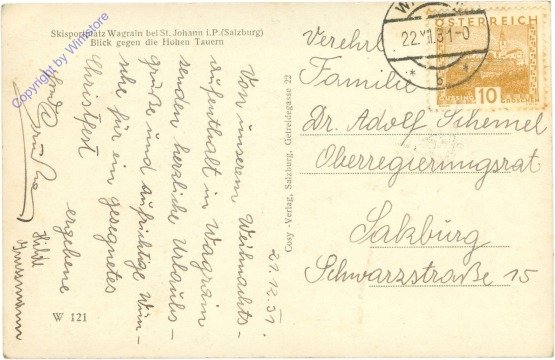 Skisportplatz Wagrain bei St. Johann i.P. (Salzburg)
Blick gegen die Hohen Tauern
Copyright by Winistore
21.12.31.
Von unserem Weihnachts-
aufenthalt in Wagrain
senden herzliche Urlaubs-
grüße und aufrichtige Wün-
sche für ein gesegnetes
Christfest
ergebene
W 121
Cosy-Verlag, Salzburg, Getreidegasse 22
22.XII.31-0
* b *
ÖSTERREICH
10
GROSCHEN
Verehrl.
Familie
Dr. Adolf Schemel
Oberregierungsrat
Salzburg
Schwarzstraße 15